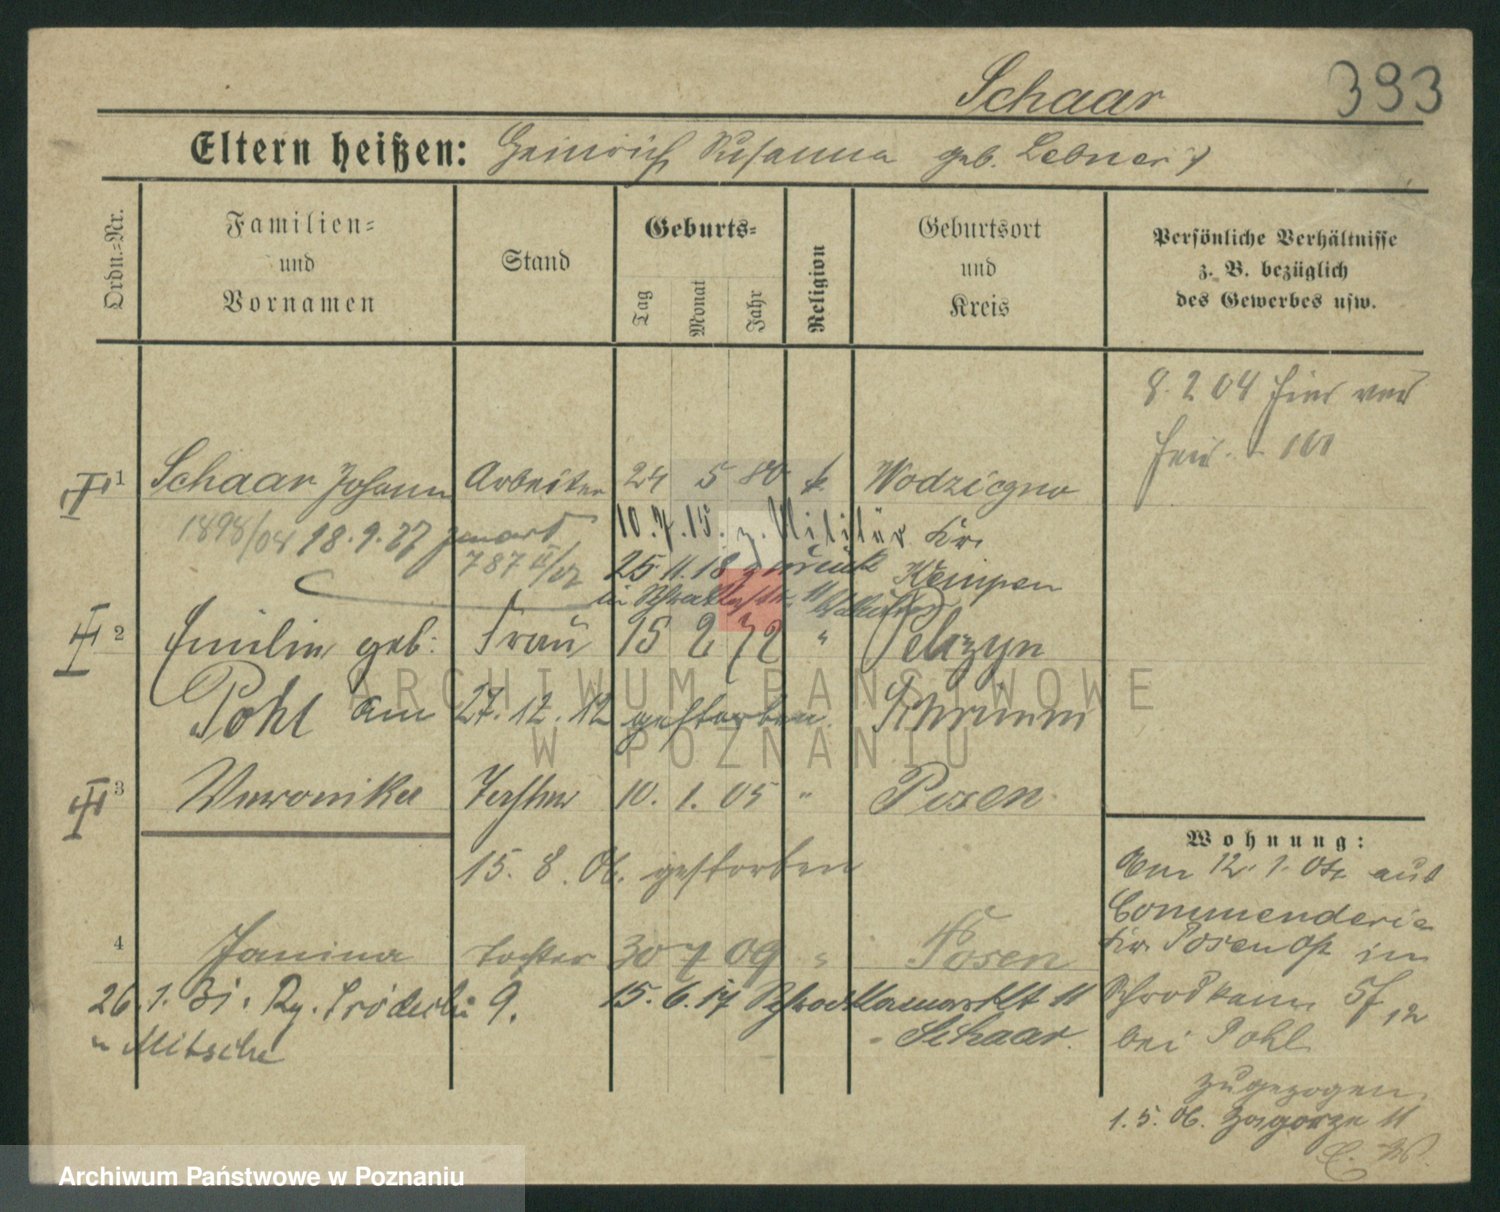 Schaar 393
Eltern heißen: Heinrich Susanna geb. Lebner
Ordn.-Nr.
Familien-
und
Vornamen
Stand
Geburts-
Tag
Monat
Jahr
Religion
Geburtsort
und
Kreis
Persönliche Verhältnisse
z. B. bezüglich
des Gewerbes usw.
8. 2 04 hier
1 Schaar Johann Arbeiter 24 5 80 k. Wodziczno
1898/04 18.9.27
10.7.15. z. Militär Kr.
787 II/07 25.11.18 zurück Kempen
in
2 Emilie geb: Frau 15 2 72 " Pelczyn
Pohl am 27.12.12 gestorben. Schrimm
3 Veronika Tochter 10. 1. 05 " Posen
15. 8. 06. gestorben
4 Janina Tochter 30 7 09 " Posen
26.1. 9. 15.6.17 11
u Mitsche - Schaar.
Wohnung:
Am 12. 1. 04 aus
Commenderie
Kr. Posen Ost in
Schrodkamm 5f 12
bei Pohl
zugezogen.
1. 5. 06. Zagorze 11
ARCHIWUM PAŃSTWOWE
W POZNANIU
Archiwum Państwowe w Poznaniu